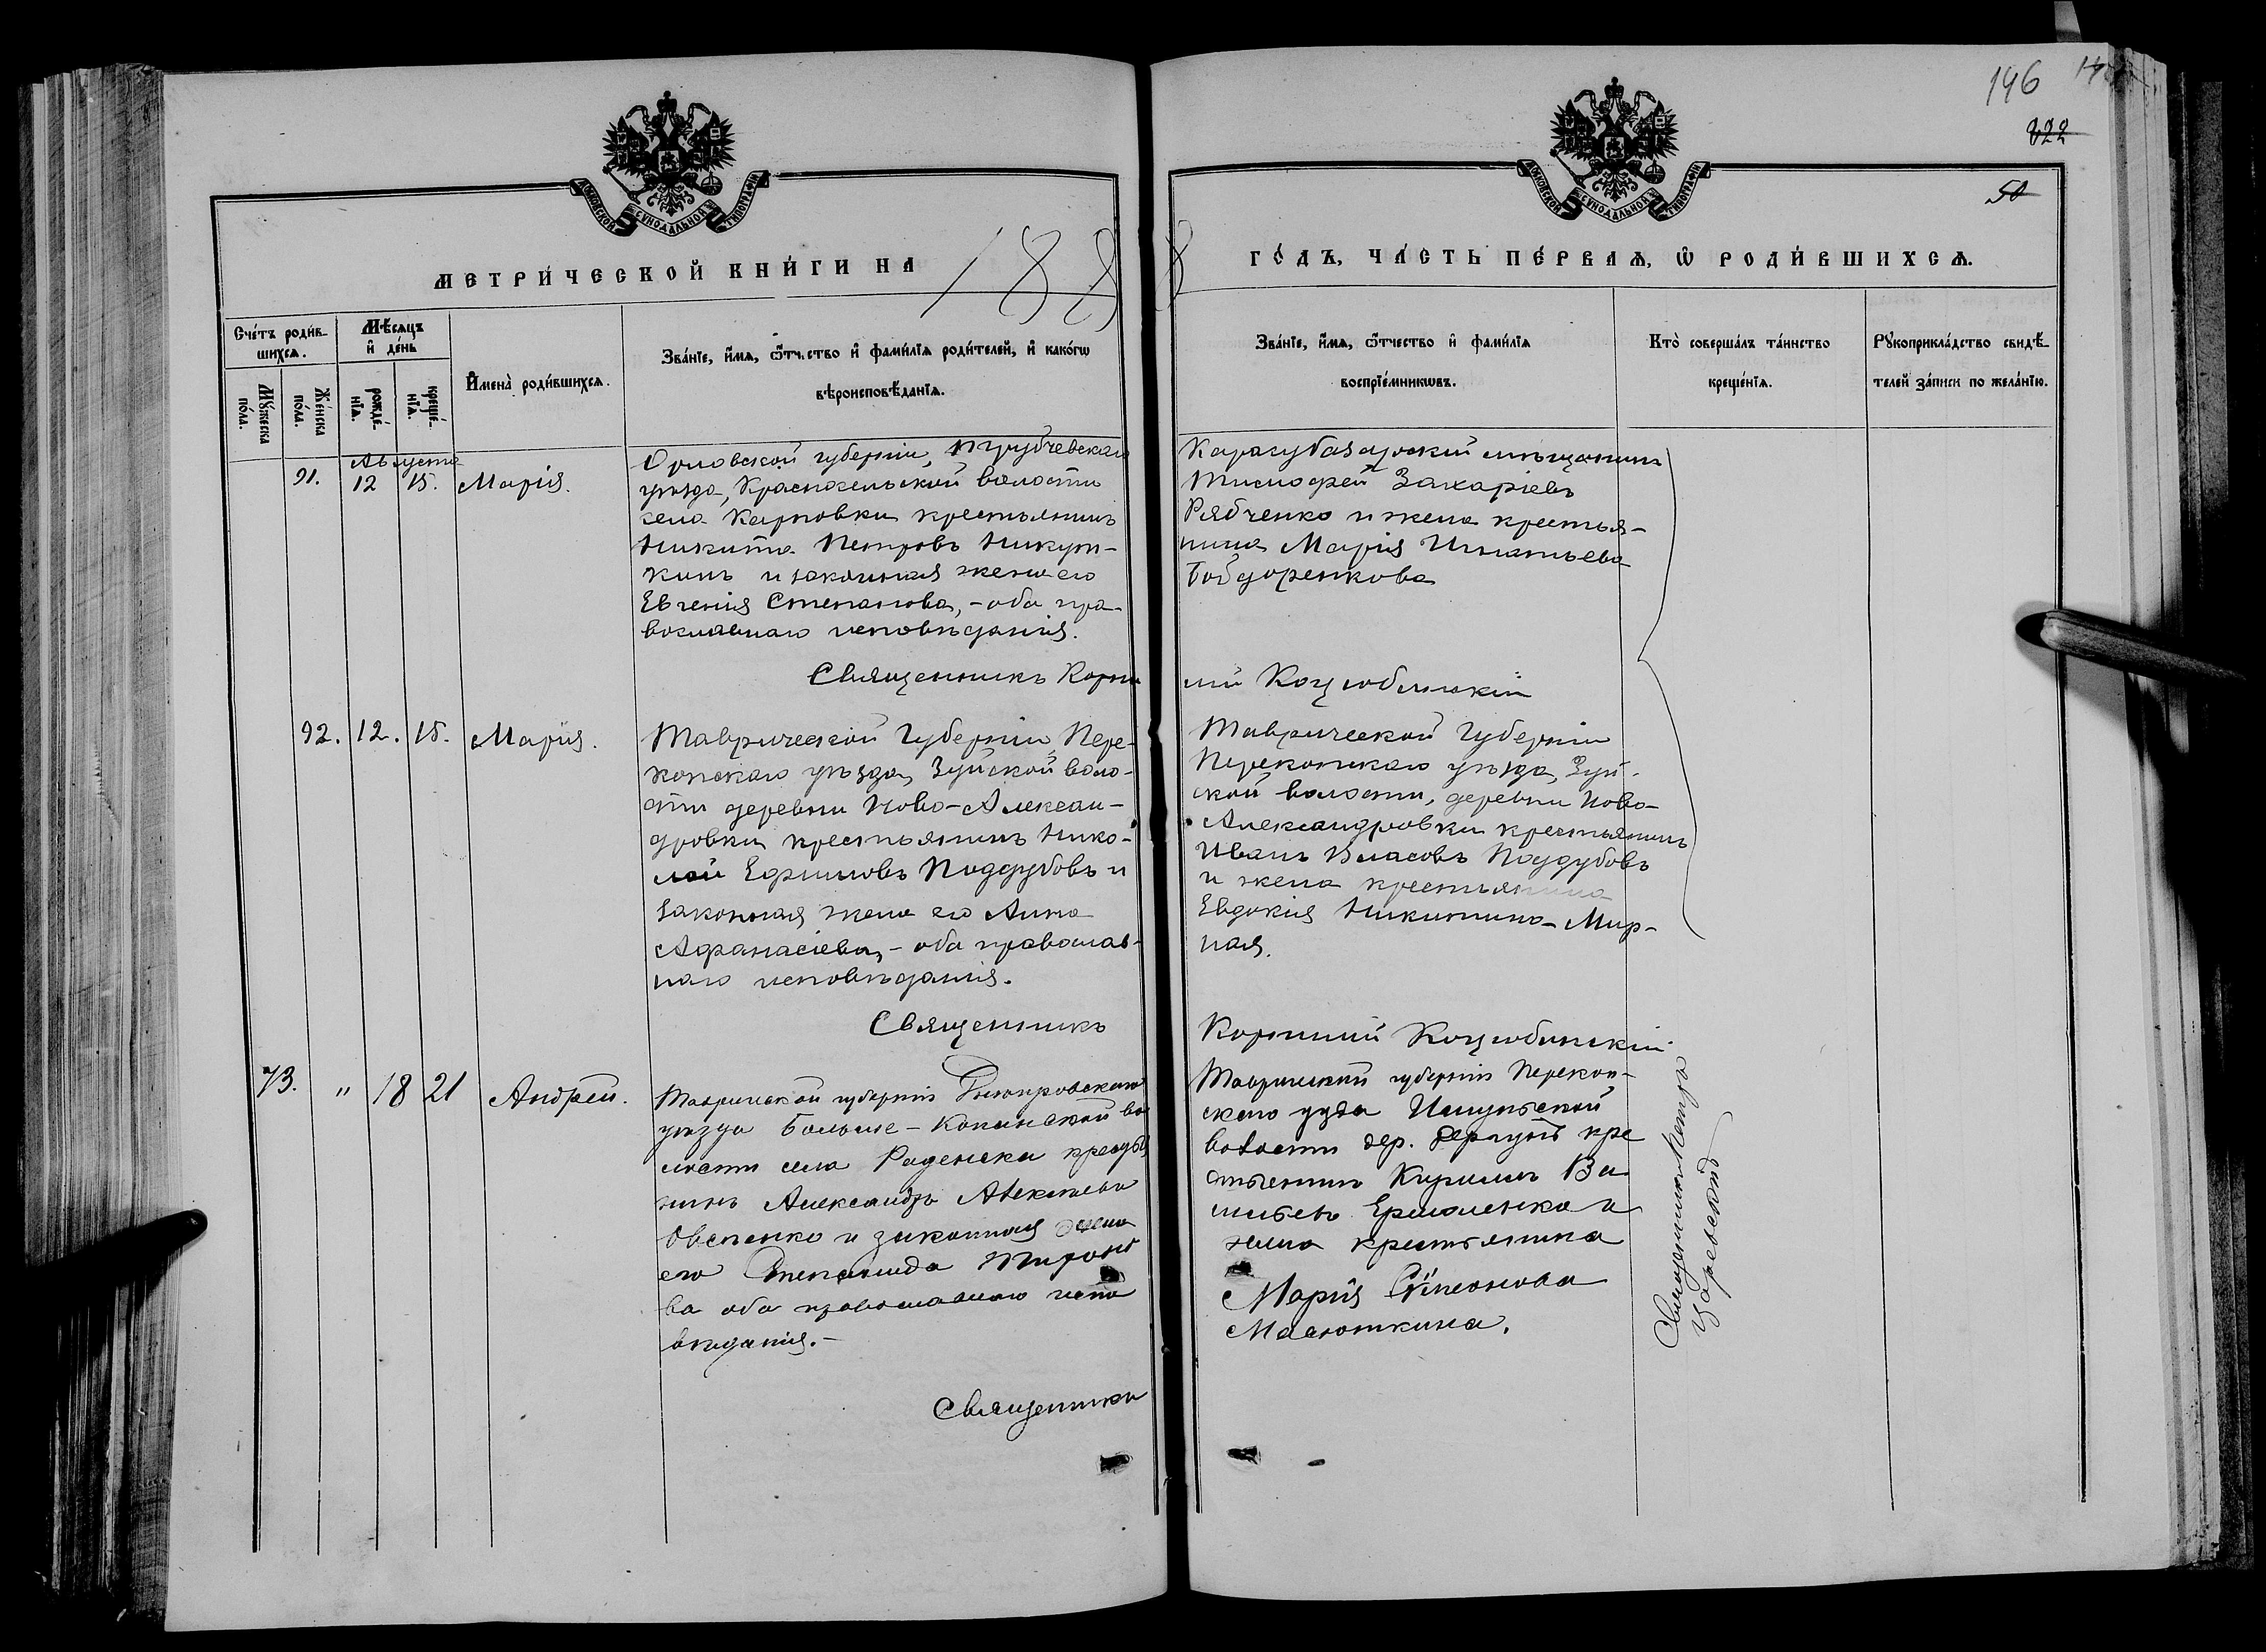 196
822
50
МОСКОВСКОЙ СѴНОДАЛЬНОЙ ТИПОГРАФІИ
МОСКОВСКОЙ СѴНОДАЛЬНОЙ ТИПОГРАФІИ
МЕТРИ́ЧЕСКОЙ КНИ́ГИ НА 1888 ГО́ДЪ, ЧА́СТЬ ПЕ́РВАѦ, Ѡ РОДИ́ВШИХСѦ.
Сче́тъ роди́в-
шихсѧ.
Мꙋ́жеска
по́ла.
Же́нска
по́ла.
Мѣ́сѧцъ
и҆ де́нь
рожде́-
нїѧ.
креще́-
нїѧ.
И҆мена̀ роди́вшихсѧ.
Зва́нїе, и҆́мѧ, ѻ҆́тчество и҆ фами́лїѧ роди́телей, и҆ како́гѡ
вѣроисповѣ́данїѧ.
Зва́нїе, и҆́мѧ, ѻ҆́тчество и҆ фами́лїѧ
воспрїе́мникѡвъ.
Кто̀ соверша́лъ та́инство
креще́нїѧ.
Рꙋкоприкла́дство свидѣ́-
телей за́писи по жела́нїю.
Августа
91. 12 15. Марія.
Орловской губерніи, Трубчевскаго
уѣзда, Краснасельской волости
села Карповки крестьянинъ
Никита Петровъ Никут-
кинъ и законная жена его
Евгенія Степанова, - оба пра-
вославнаго исповѣданія.
Карасубазарскій мѣщанинъ
Тимофей Захаріевъ
Рябченко и жена крестья-
нина Марія Игнатьева
Священникъ Корни
лій Коцюбинскій
92. 12. 15. Марія.
Таврической Губерніи, Пере-
копскаго уѣзда, Зуйской воло-
сти деревни Ново-Алексан-
дровки крестьянинъ Нико-
лай Ефимовъ Поддубовъ и
законная жена его Анна
Афанасіева, - оба православ-
наго исповѣданія.
Таврической Губерніи
Перекопскаго уѣзда, Зуй-
ской волости, деревни Ново-
Александровки крестьянинъ
Иванъ Власовъ Поддубовъ
и жена крестьянина
Евдокія Никитина Мир-
ная.
Священникъ
Корнилій Коцюбинскій
73. " 18 21 Андрей.
Таврической губерніи Днѣпровскаго
уѣзда Больше-Копанской во
лости села Раденска крестья
нинъ Александръ Алексѣевъ
Овсенко и законная жена
его Степанида Тироно
ва оба православнаго испо
вѣданія.-
Таврической губерніи Перекоп-
скаго уѣзда Ишунской
волости дер.
стьянинъ Кириллъ Ва
сильевъ Ермоленко и
жена крестьянина
Марія Симеонова
Масюткина.
Священникъ Петръ
Царевскій
Священники